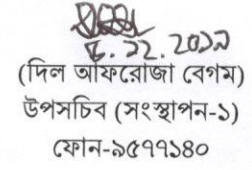 ৪.১২.২০১৯
(দিল আফরোজা বেগম)
উপসচিব (সংস্থাপন-১)
ফোন-৯৫৭৭১৪০